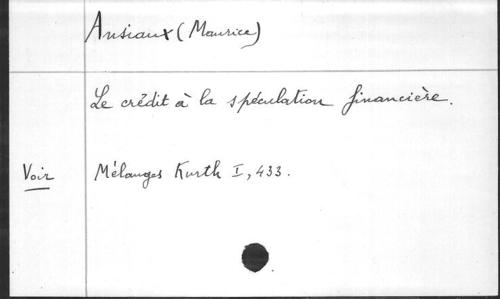 Ansiaux (Maurice)
Le crédit à la spéculation financière.
Voir Mélanges Kurth I, 433.